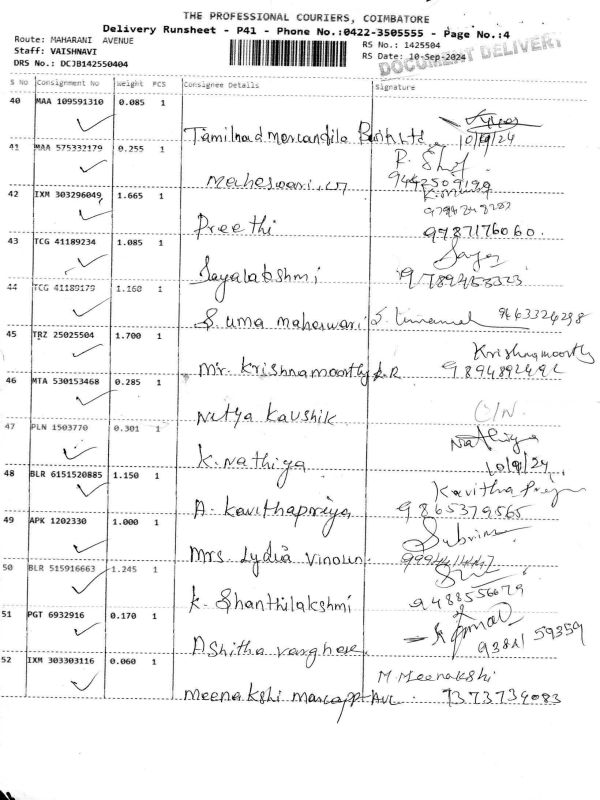 THE PROFESSIONAL COURIERS, COIMBATORE
Delivery Runsheet - P41 - Phone No.:0422-3505555 - Page No.:4
Route: MAHARANI AVENUE
RS No.: 1425504
Staff: VAISHNAVI
RS Date: 10-Sep-2024
DOCUMENT DELIVERY
DRS No.: DCJB142550404
S No Consignment No Weight PCS Consignee Details Signature
40 MAA 109591310 0.085 1
Tamilnad Mercandile Bank Ltd 10/9/24
41 MAA 575332179 0.255 1
Maheswari 
42 IXM 303296049 1.665 1
Preethi 9787176060.
43 TCG 41189234 1.085 1
Jayalakshmi 9789458323
44 TCG 41189179 1.160 1
S. Uma maheswari 9463324298
45 TRZ 25025504 1.700 1
Krishnamoorthy
Mr. Krishnamoorthy 9894892492
46 MTA 530153468 0.285 1
Nitya Kaushik
47 PLN 1503770 0.301 1
Nathiya
K. Nathiya 10/9/24
48 BLR 6151520885 1.150 1
Kavitha
A. Kavithapriya 9865379565
49 APK 1202330 1.000 1
Mrs. Lydia
50 BLR 515916663 1.245 1
K. Shanthilakshmi 9488556679
51 PGT 6932916 0.170 1
Ashitha 93841 59359
52 IXM 303303116 0.060 1
M Meenakshi
Meenakshi 7373739083